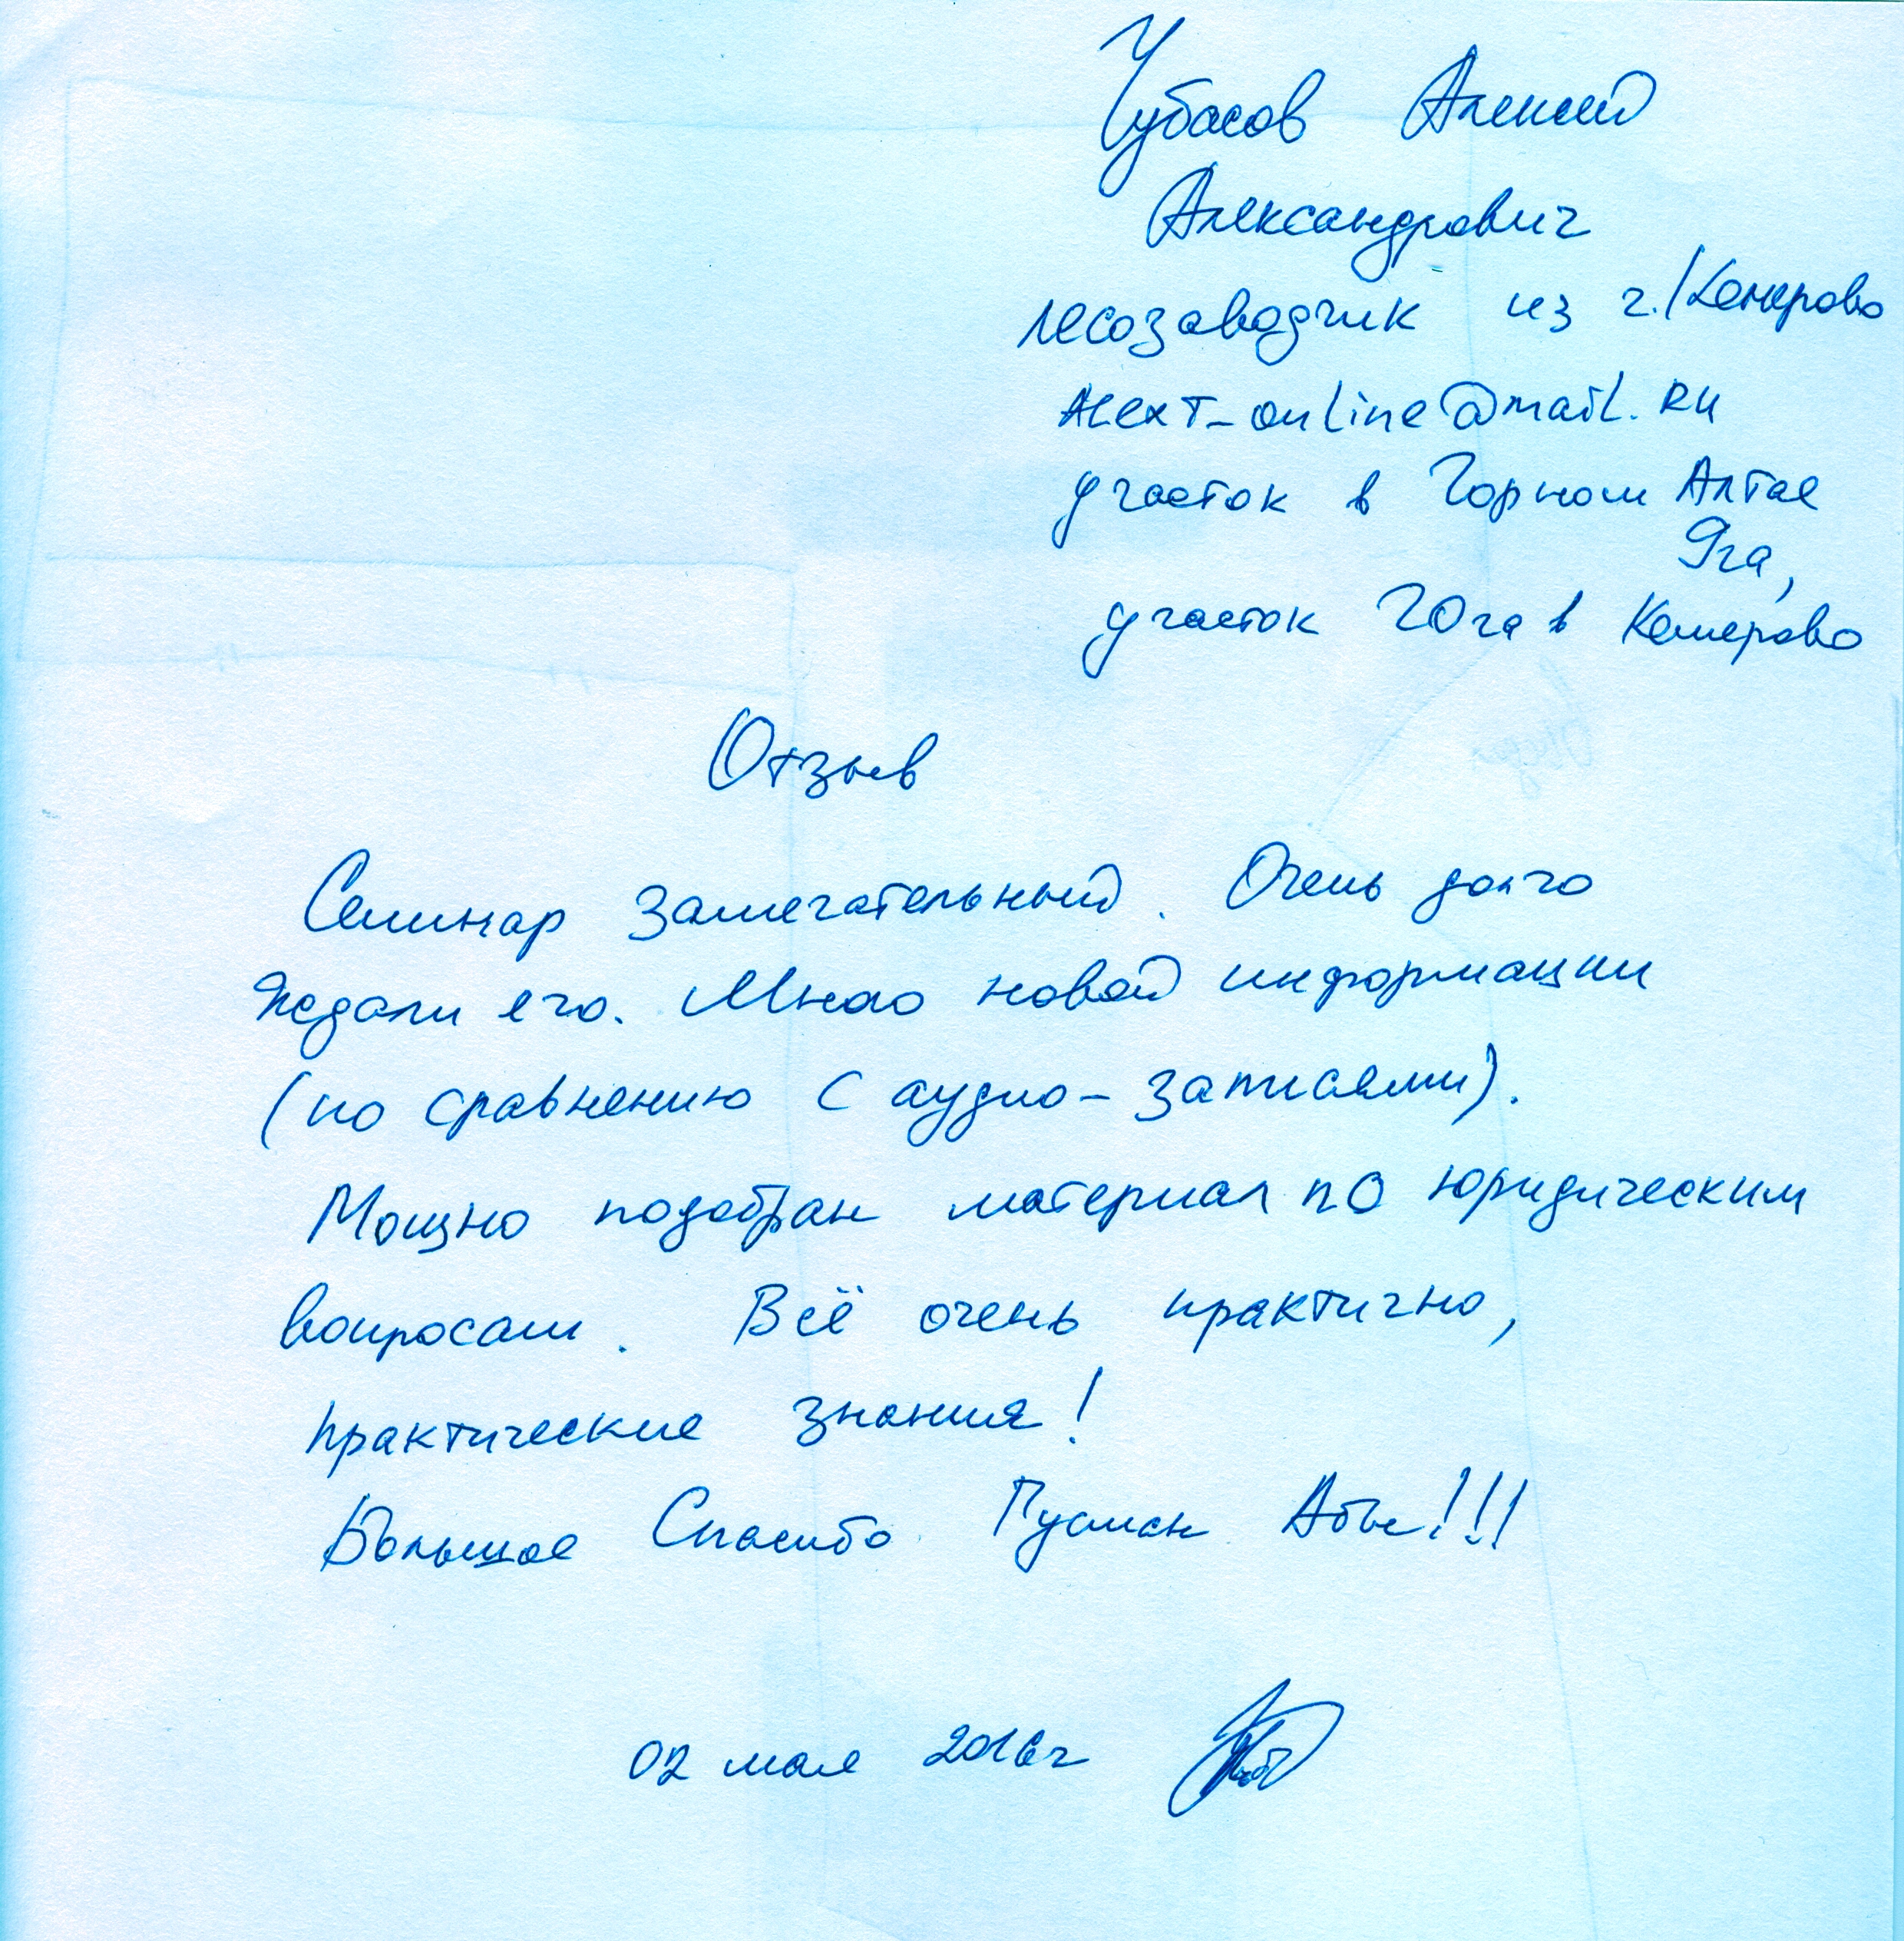 Чубасов Алексей
Александрович
лесозаводчик из г. Кемерово
Alext_online@mail.RU
участок в Горном Алтае
9га,
участок 20га в Кемерово
Отзыв
Семинар замечательный. Очень долго
ждали его. Много новой информации
(по сравнению с аудио-записями).
Мощно подобран материал по юридическим
вопросам. Всё очень практично,
практические знания!
Большое Спасибо
02 мая 2016г